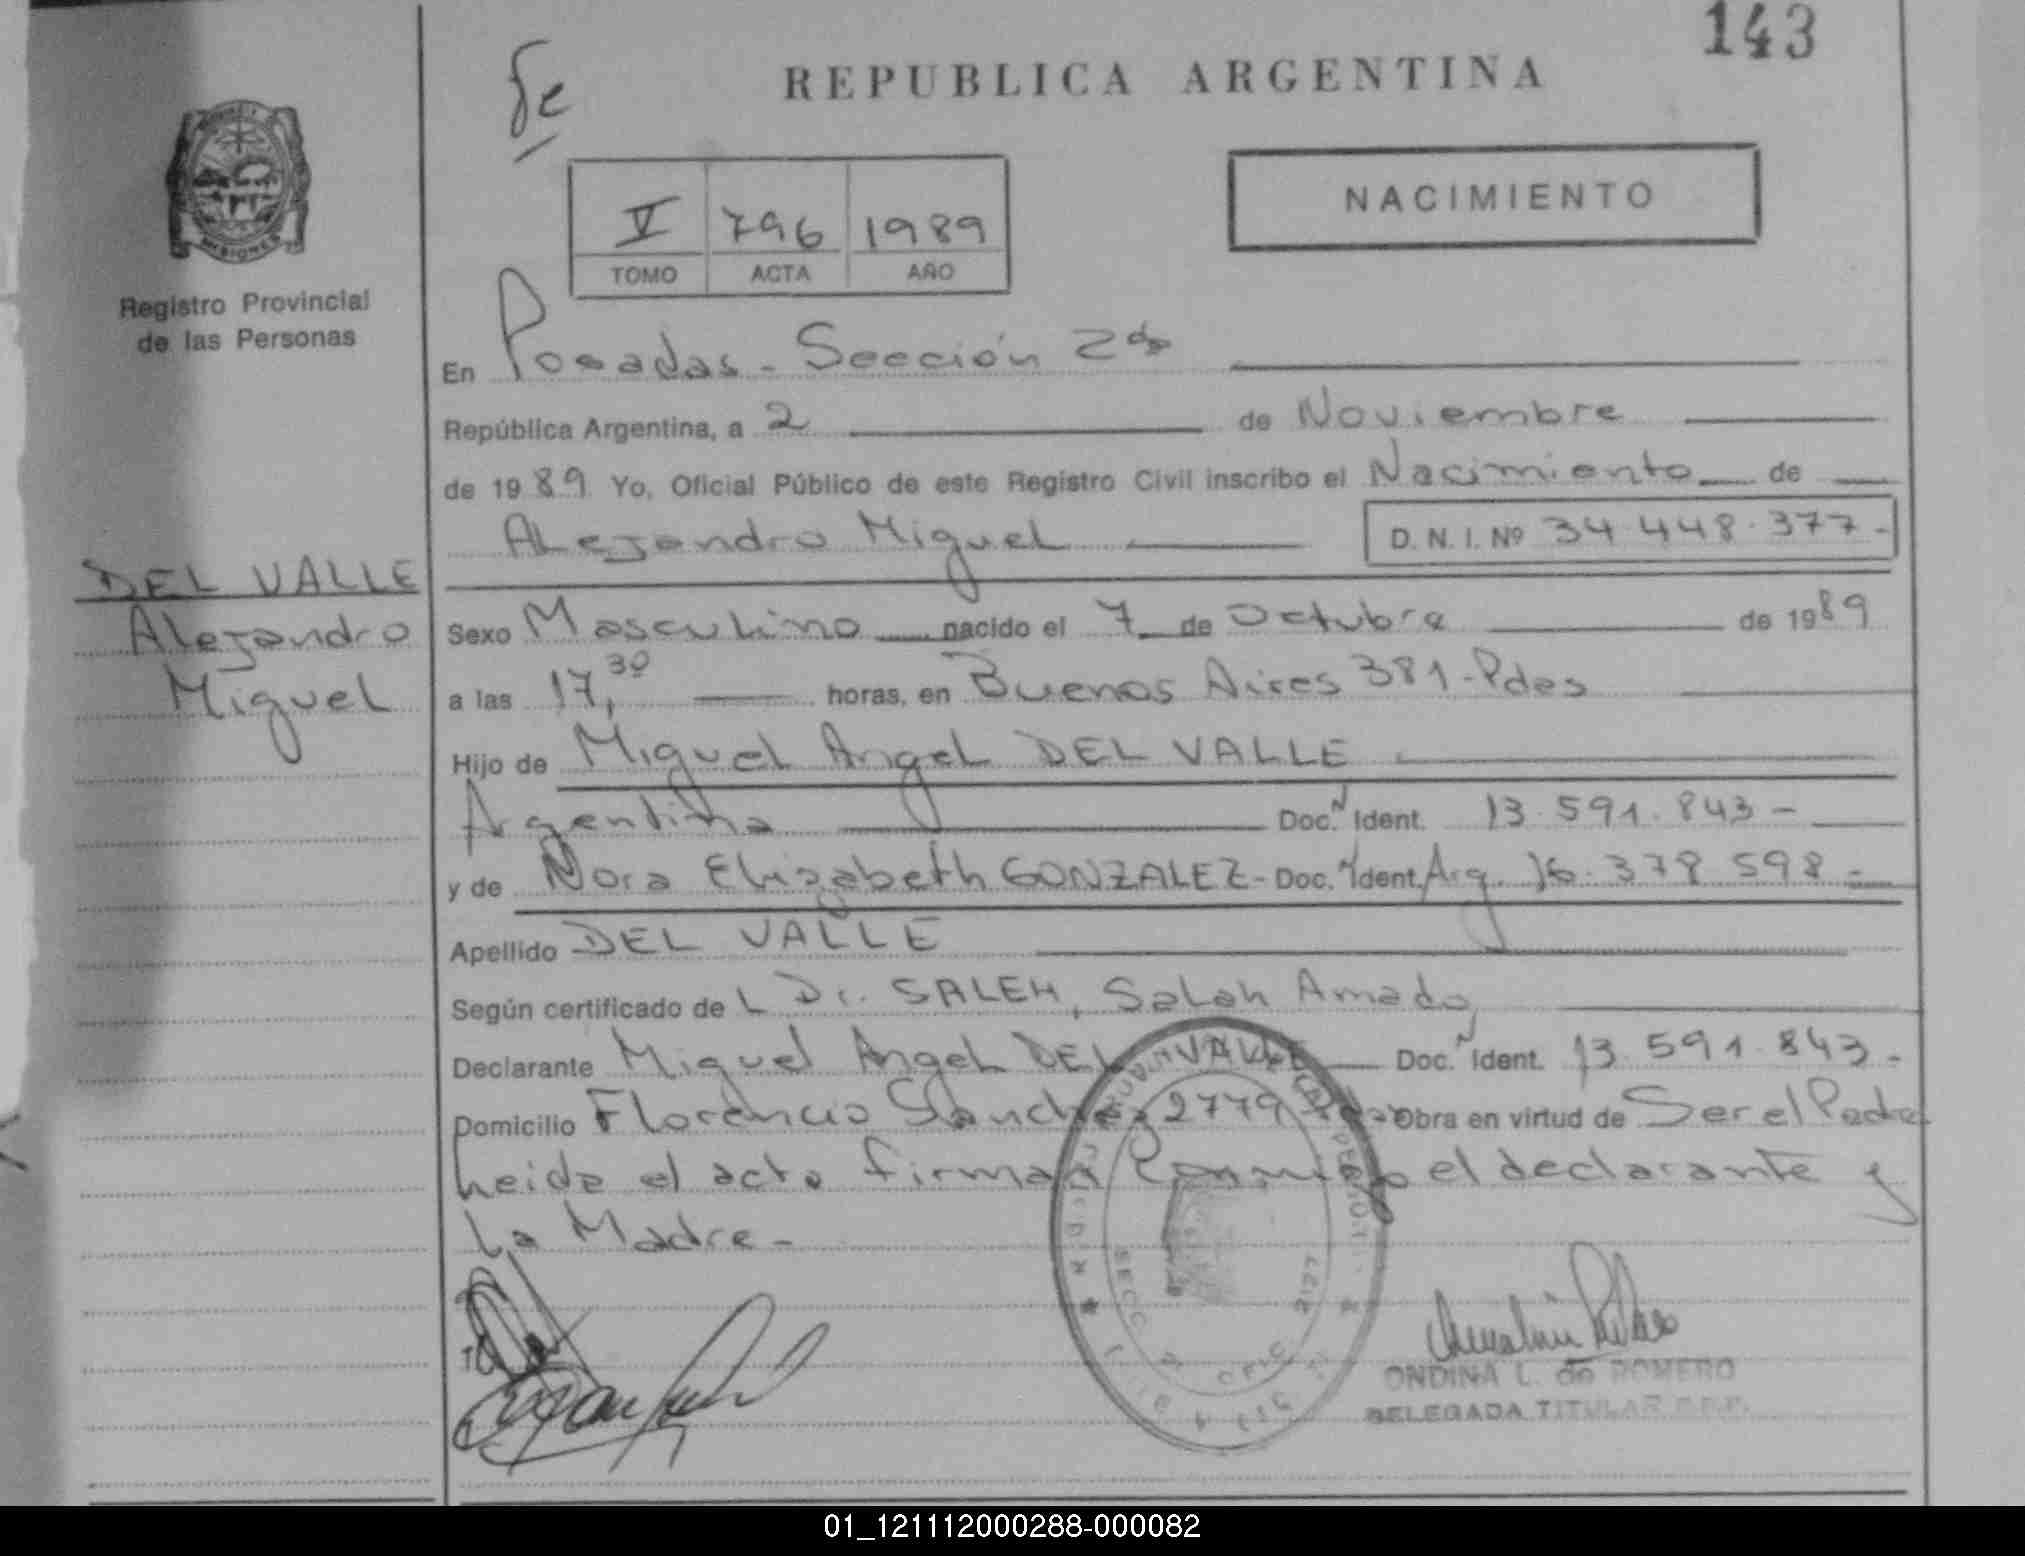 143
fe
REPUBLICA ARGENTINA
MISIONES
Registro Provincial
de las Personas
V 796 1989
TOMO ACTA AÑO
NACIMIENTO
En Posadas - Sección 2da
República Argentina, a 2 de Noviembre
de 1989 Yo, Oficial Público de este Registro Civil inscribo el Nacimiento de
Alejandro Miguel D.N.I. Nº 34.448.377-
DEL VALLE
Alejandro
Miguel
Sexo Masculino nacido el 7 de Octubre de 1989
a las 17,30 horas, en Buenos Aires 381-Pdas
Hijo de Miguel Angel DEL VALLE
Argentina Doc. N Ident. 13.591.843-
y de Nora Elizabeth GONZALEZ- Doc. N Ident. Arg. 16.378.598-
Apellido DEL VALLE
Según certificado de L Dr. SALEH, Salah Amado
Declarante Miguel Angel DEL VALLE Doc. N Ident. 13.591.843-
Domicilio Florencio Sanchez 2779 Pdas- Obra en virtud de Ser el Padre
Leida el acta firman conmigo el declarante y
La Madre-
ONDINA L. de ROMERO
DELEGADA TITULAR
01_121112000288-000082